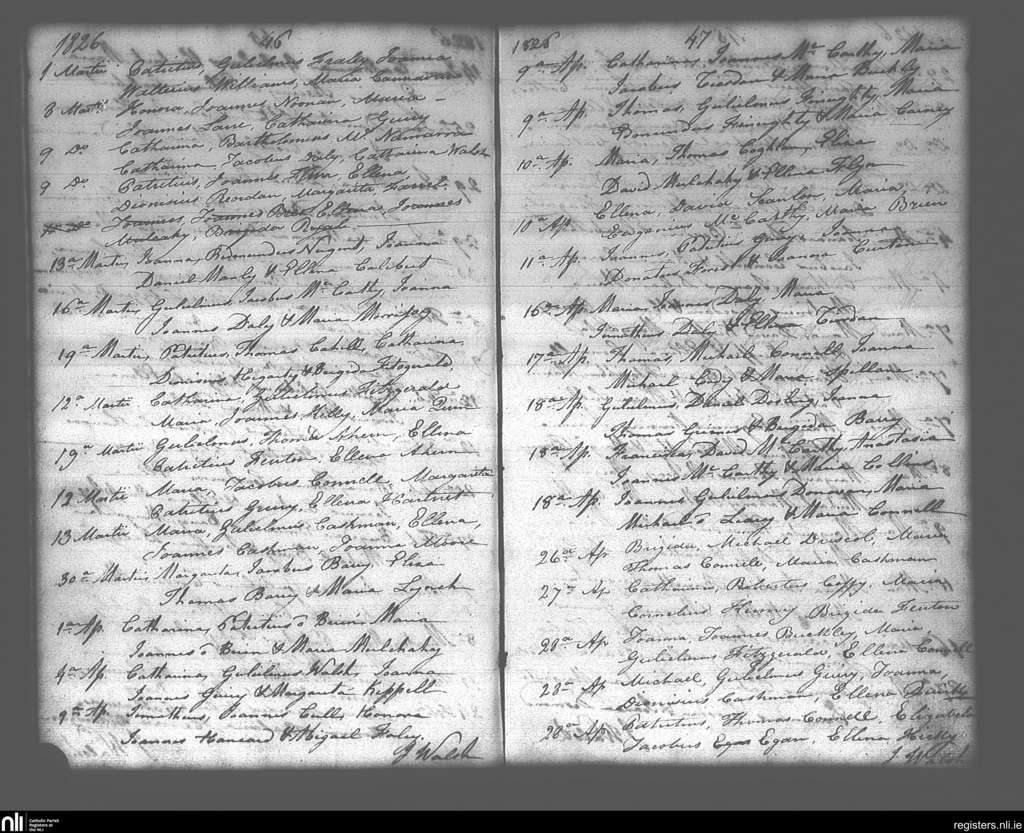 1826 46
1 Martii Patritius, Gulielmus Fraly, Joanna
Walterius Williams, Maria Connavan
8 Martii Honora, Joannes Noonan, Maria –
Joannes Lane, Catharina Geury
9 Do Catharina, Bartholomeus Mc Namarra
Catharina, Jacobus Daly, Catharina Walsh
9 Do Patritius, Joannes Flin, Ellena
Dionisius Reordan, Margarita
Joannes, Joannes Ellena, Joannes
Mulcahy, Brigida
13a Martii, Joanna, Raimundus Nugent, Joanna
Daniel Manly & Ellena Culibert
16a Martii, Gulielmus Jacobus Mc Cathy, Joanna
Joannes Daly & Maria
19a Martii, Patritius, Thomas Cahill, Catharina,
Dionisius Hegarty & Brigida Fitzgerald,
12a Martii Catharina, Gulielmus Fitzgerald
Maria, Joannes Kelly, Maria Quin
19a Martii Gulielmus, Thomas Ahern, Ellena
Patritius Fenton, Ellena Ahern
12 Martii Maria, Jacobus Connell, Margarita
Patritius Geury, Ellena Hartnet
13 Martii Maria, Gulielmus Cashman, Ellena,
Joannes Cashman, Joanna Moore
30a Martii, Margarita, Jacobus Barry, Eliza
Thomas Barry & Maria Lynch
1a Ap. Catharina, Patritius ō Brien Maria
Joannes ō Brien & Maria Mulchahy
4a Ap. Catharina, Gulielmus Walsh, Joanna
Joannes Geury & Margarita Keppell
9a Ap. Timotheus, Joannes Cull, Honora
Joannes & Abigael Foley.
J Walsh
1826 47
9a Ap. Catharina, Joannes Mc Cathy, Maria
Jacobus & Maria Buckly
9a Ap. Thomas, Gulielmus Finughty, Maria
Edmundus Finughty & Maria Carney
10a Ap. Maria, Thomas Coghlan, Eliza
David Mulchahy & Ellena
10a Ap. Ellena, David Scanlan, Maria,
Eugenius Mc Carthy, Maria Brien
11a Ap. Joannes, Patritius Geury, Joanna
Donatus & Joanna
16a Ap. Maria, Joannes Daly, Maria
Timotheus Daly & Ellena
17a Ap. Thomas, Michaele Connell, Joanna
Michael Eady & Maria Spillane.
18a Ap. Gulielmus, Daniel, Joanna
Thomas & Brigida Barry
18a Ap. Franciscus, David Mc Carthy, Anastasia
Joannes Mc Carthy & Maria Collins
18a Ap. Joannes Gulielmus Donovan, Maria
Michael ō Leary & Maria Connell
26a Ap Brigida, Michael Driscol, Maria
Thomas Connell, Maria, Cashman,
27a Ap Catharina, Maria
Cornelius Kenny Brigida Fenton
28a Ap Joanna, Joannes Buckley, Maria
Gulielmus Fitzgerald, Ellena Connell
28a Ap Michael, Gulielmus Geury, Joanna,
Dionisius Cashman, Ellena
28a Ap Patritius, Thomas Connell, Elizabeth
Jacobus Egan, Ellena Hicky
J Walsh
nli Catholic Parish
Registers at
the NLI
registers.nli.ie